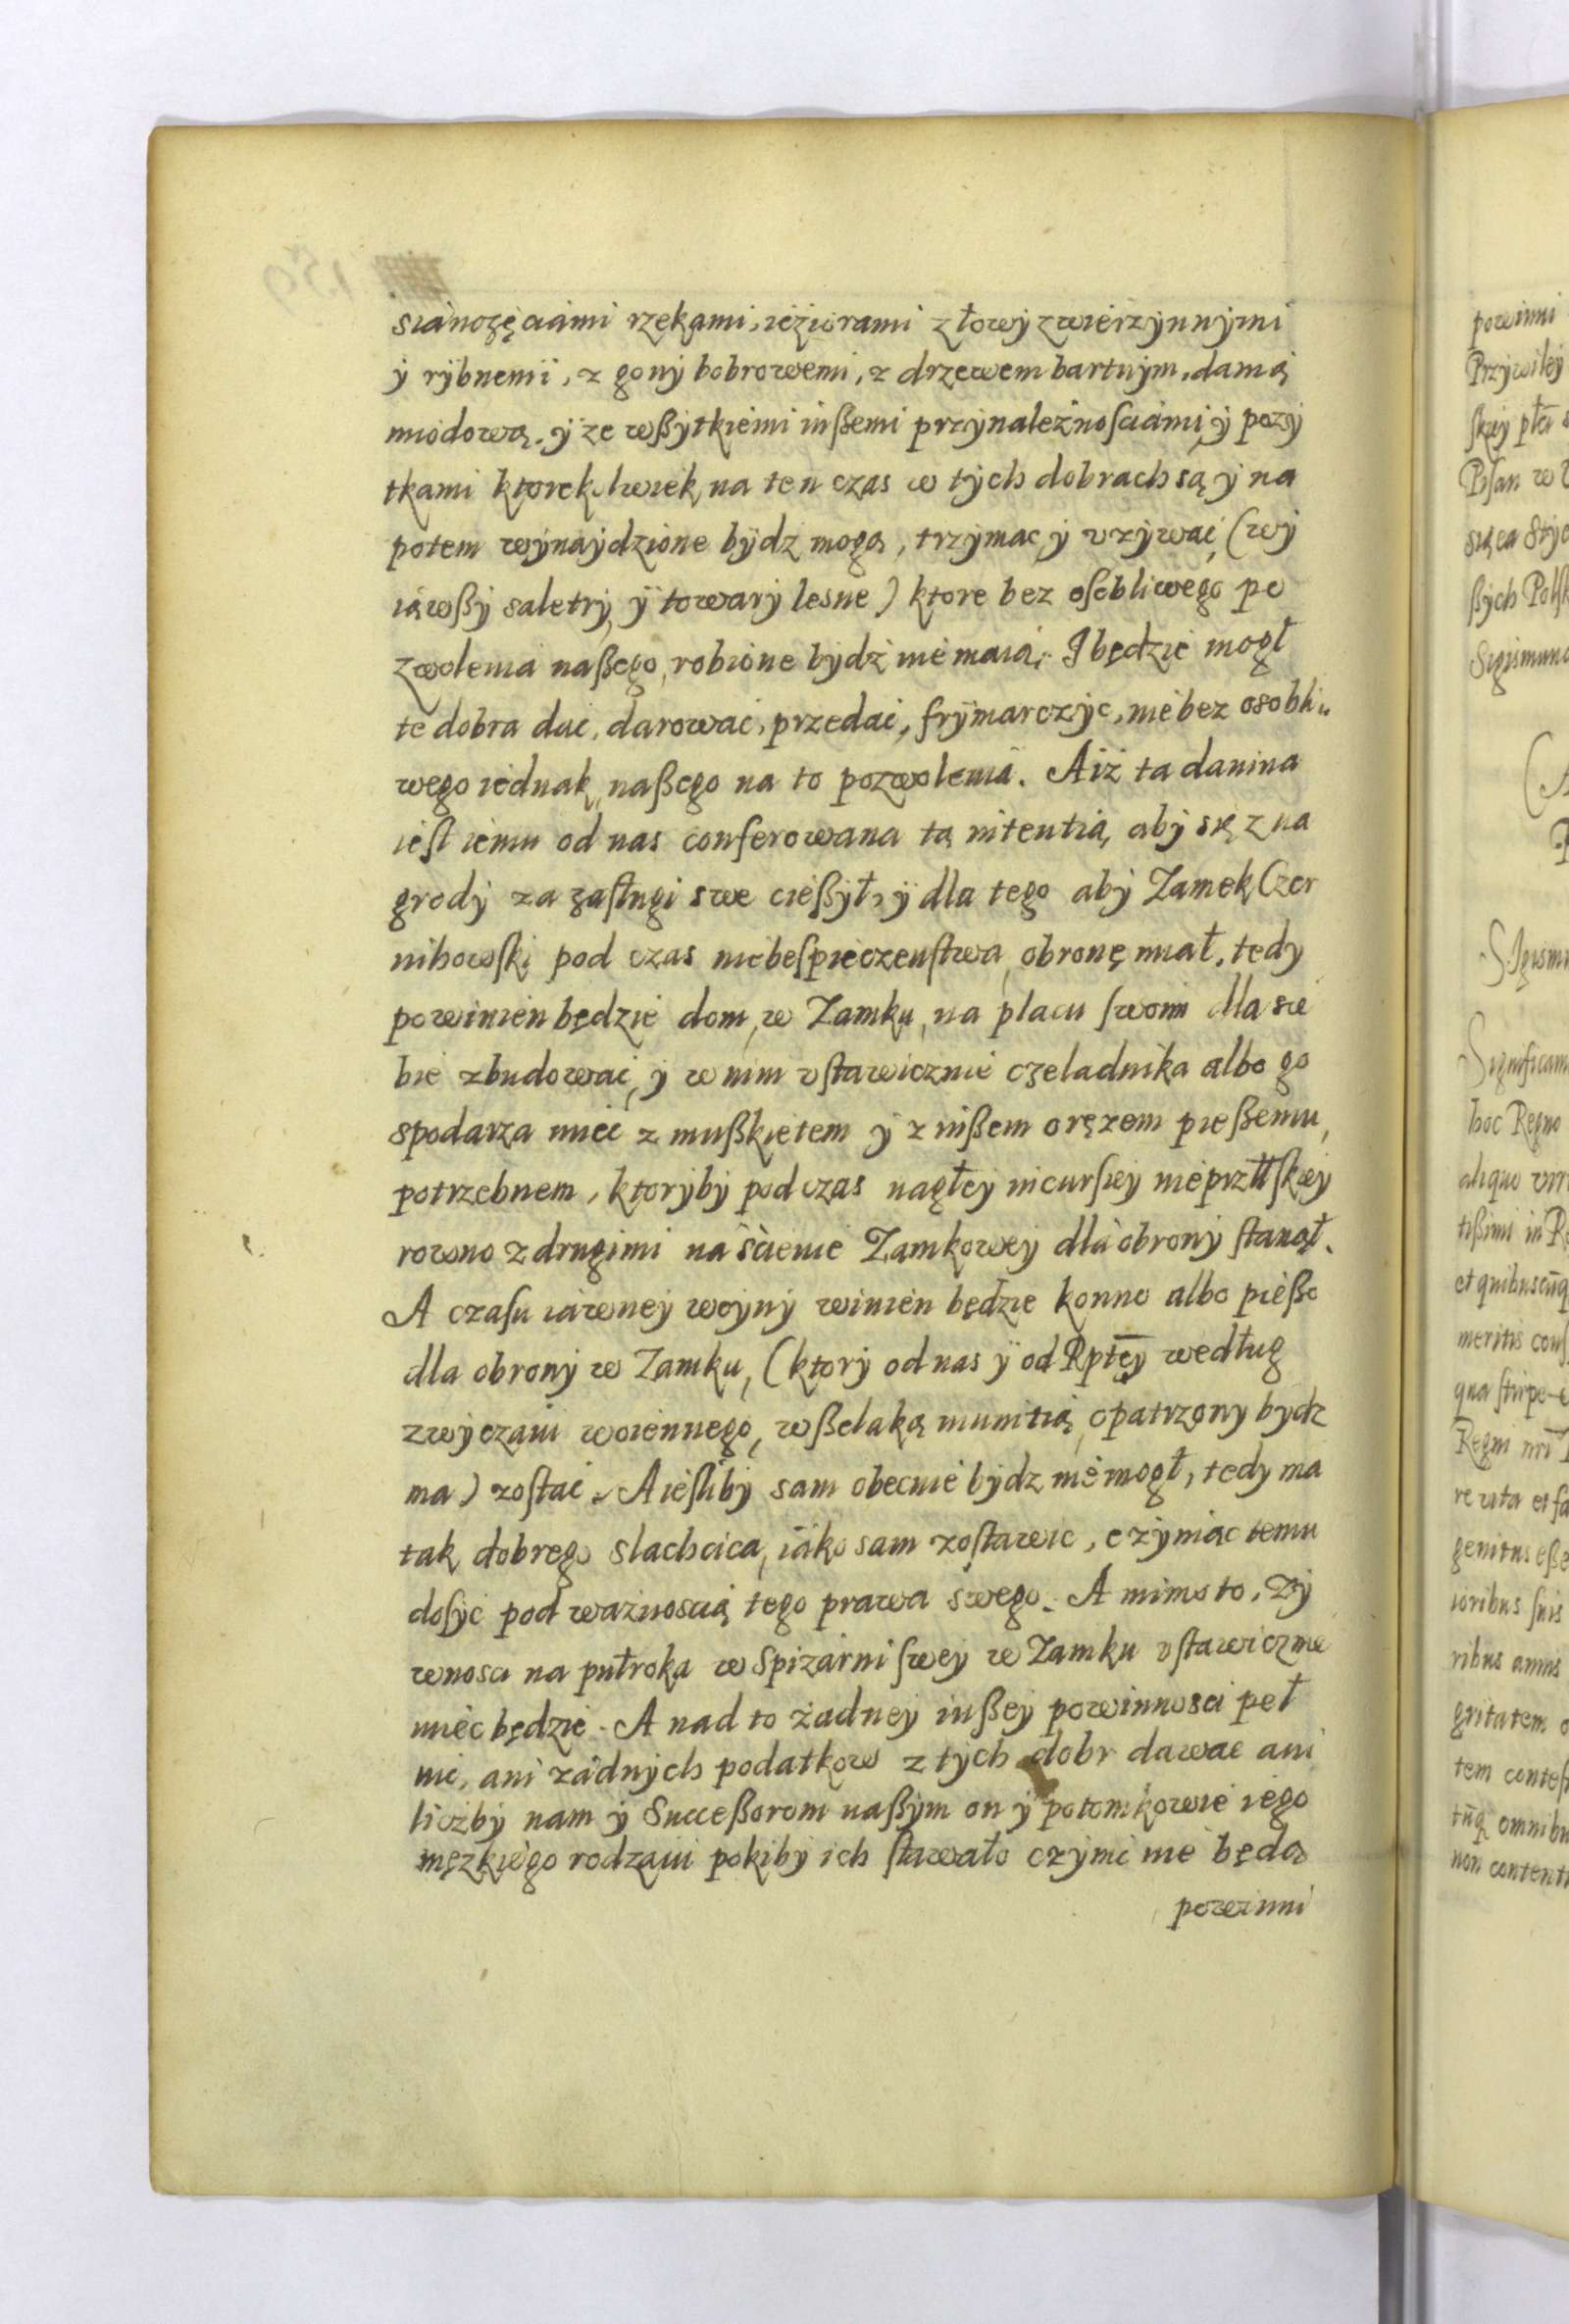 sianożęciami rzekami, ieziorami z łowy zwierzynnymi
ÿ rÿbnemi, z gony bobrowemi, z drzewem bartnym, danią
miodową. ÿ ze wßytkiemi inßemi przynależnosciami, ÿ pozy
tkami ktorekolwiek na ten czas w tych dobrach są ÿ na
potem wynaydzione bydz mogą, trzymac ÿ vzywać, (wy
iąwßy saletry, ÿ towary lesne) ktore bez osobliwego po
zwolenia naßego, robione bydź nie maią. I będzie mogł
te dobra dać, darować, przedać, frymarczyc, nie bez osobli„
wego iednak naßego na to pozwolenia. A iż ta danina
iest iemu od nas conferowana tą intentią, aby się z na
grody za zasługi swe cießył, ÿ dla tego aby Zamek Czer
nihowski pod czas niebespieczenstwa, obronę miał. tedy
powinien będzie dom, w Zamku, na placu swoim dla sie
bie zbudować, ÿ w nim vstawicznie czeladnika albo go
spodarza mieć z mußkietem ÿ z inßem oręzem pießemu,
potrzebnem, ktoryby pod czas nagłey incursiey nieprzÿłskiey
rowno z drugimi na ścienie Zamkowey dla obrony stanął.
A czasu iawney woyny winien będzie konno albo pießo
dla obrony w Zamku, (ktory od nas ÿ od Rptey według
zwyczaiu woiennego, wßelaką munitią, opatrzony bydz
ma) zostać. A iesliby sam obecnie bydz nie mogł, tedy ma
tak dobrego slachcica, iako sam zostawic, czyniac temu
dosyć pod ważnoscią tego prawa swego. A mimo to, zy
wnosci na pułroka w Spizarni swey w Zamku vstawicznie
miec będzie. A nad to żadney inßey powinnosci peł
nic, ani żadnych podatkow z tych dobr dawac ani
liczby nam ÿ Succeßorom naßym on ÿ potomkowie iego
męzkiego rodzaiu pokiby ich stawało czynic nie będą
powinni

powinni
Przywiley
skiey
Pisan w
siąca Stycz
ßych Polsk
Sigismund

Sigism
Significam
hoc Regno
aliquo
tißimi in R
et quibuscūq
meritis
qua stirpe
Regni nri
re vita et fa
genitus eße
ioribus suis
ribus annis
gritatem
tem contes
omnibu
non contenti